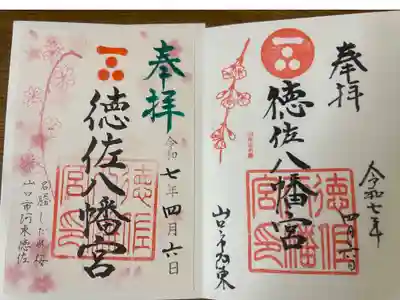 奉拝
徳佐八幡宮
令和七年四月六日
徳佐八幡宮印
名勝しだれ桜
山口市阿東徳佐
奉拝
徳佐八幡宮
令和七年
四月六日
徳佐八幡宮印
山口市阿東